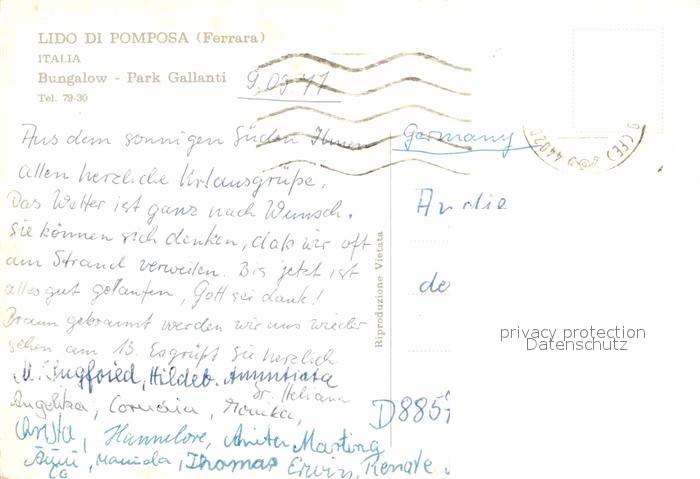 LIDO DI POMPOSA (Ferrara)
ITALIA
Bungalow - Park Gallanti
Tel. 79-30
9.09.77
Aus dem sonnigen Süden Ihnen
allen herzliche Urlausgrüße.
Das Wetter ist ganz nach Wunsch.
Sie können sich denken, daß wir oft
am Strand verweilen. Bis jetzt ist
alles gut gelaufen, Gott sei dank!
Braun gebrannt werden wir uns wieder
sehen am 13. Es grüßt Sie herzlich
M. Siegfried, Hildeb. Annuntiata
Sr. Heliana
Angelika, Cornelia, Monika,
Christa, Hannelore, Anita Marting
Manuela, Thomas Erwin, Renate
Germany
An die
de
D885
Riproduzione Vietata
44020
(FE)
privacy protection
Datenschutz